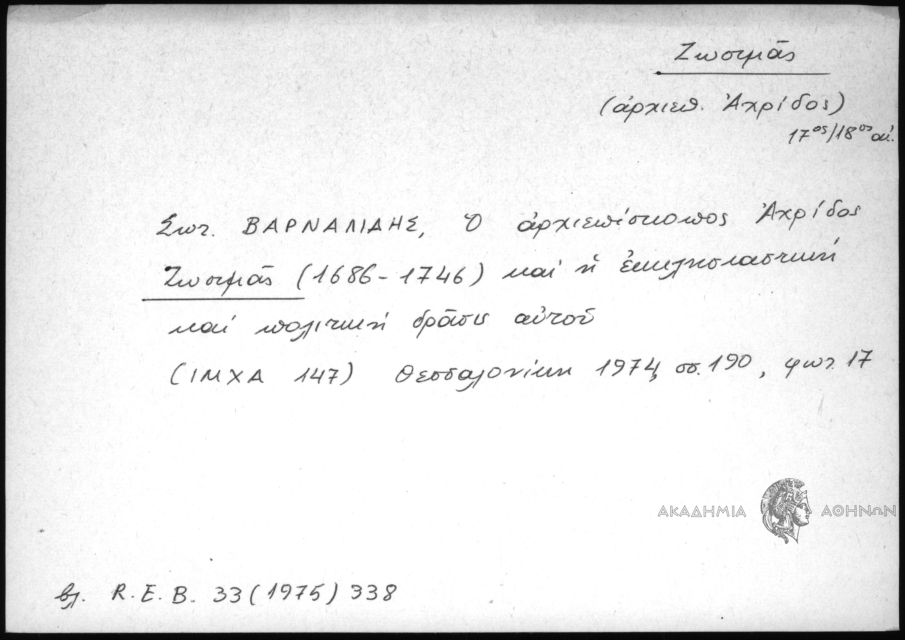 Ζωσιμᾶς
(ἀρχιεπ. Ἀχρίδος)
17ος/18ος αἰ.
Σωτ. ΒΑΡΝΑΛΙΔΗΣ, Ὁ ἀρχιεπίσκοπος Ἀχρίδος
Ζωσιμᾶς (1686-1746) καί ἡ ἐκκλησιαστική
καί πολιτική δρᾶσις αὐτοῦ
(ΙΜΧΑ 147) Θεσσαλονίκη 1974, σσ. 190, φωτ. 17
ΑΚΑΔΗΜΙΑ ΑΘΗΝΩΝ
βλ. R.E.B. 33 (1975) 338